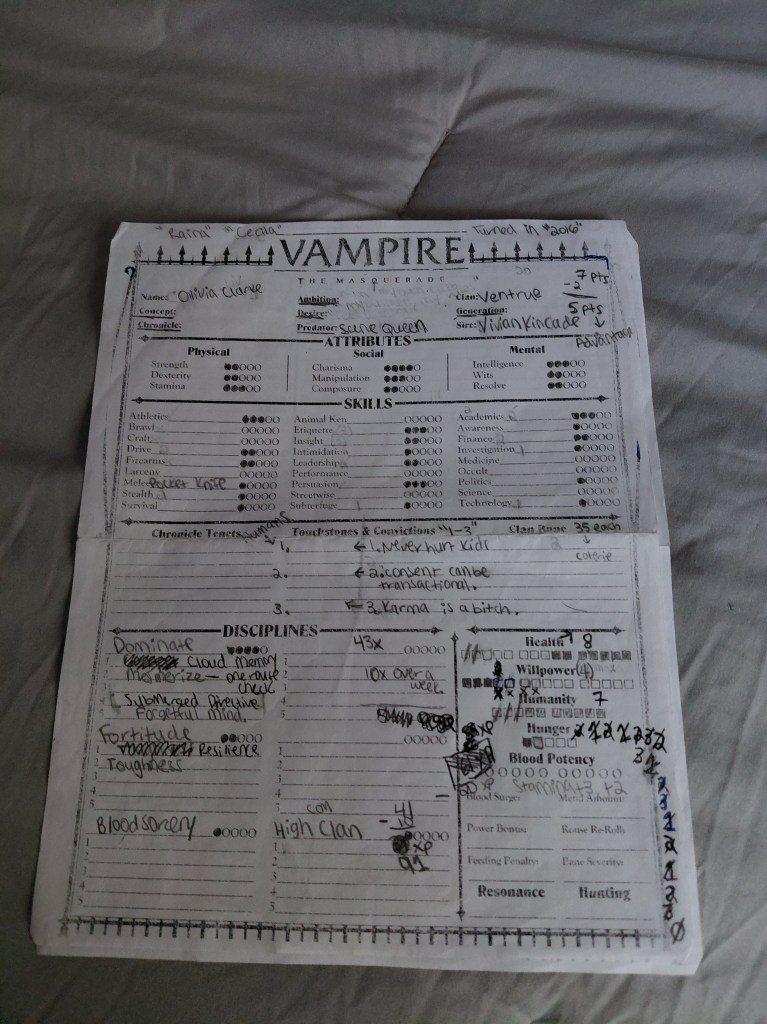 "Raina" "Cecila" Turned in "2016"
VAMPIRE
THE MASQUERADE
7 pts
-2
5 pts
Name: Olivia Clarke Ambition: Clan: Ventrue
Concept: Desire: Generation:
Chronicle: Predator: Scene queen Sire: Vivian Kincade
ATTRIBUTES
Physical Social Mental
Strength Charisma Intelligence
Dexterity Manipulation Wits
Stamina Composure Resolve
SKILLS
Athletics Animal Ken Academics
Brawl Etiquette Awareness
Craft Insight Finance
Drive Intimidation Investigation
Firearms Leadership Medicine
Larceny Performance Occult
Melee Pocket Knife Persuasion Politics
Stealth Streetwise Science
Survival Subterfuge Technology
Chronicle Tenets Humans Touchstones & Convictions "1-3" Clan Bane 35 each
coterie
1. ← 1. Never hurt kids
2. ← 2. consent can be
transactional.
3. ← 3. Karma is a bitch.
DISCIPLINES
Dominate 43x
1 Cloud memory
2 Mesmerize — one route
check
10x over a
week
4 Submerged Directive
Forgetful Mind.
Fortitude
1 Resilience
2 Toughness
3
4
5
Blood sorcery High Clan
41
xp
91
Health 8
Willpower (4)
Humanity 7
Hunger
Blood Potency
Stamina+3 +2
Blood Surge: Mend Amount:
Power Bonus: Rouse Re-Roll:
Feeding Penalty: Bane Severity:
Resonance Hunting